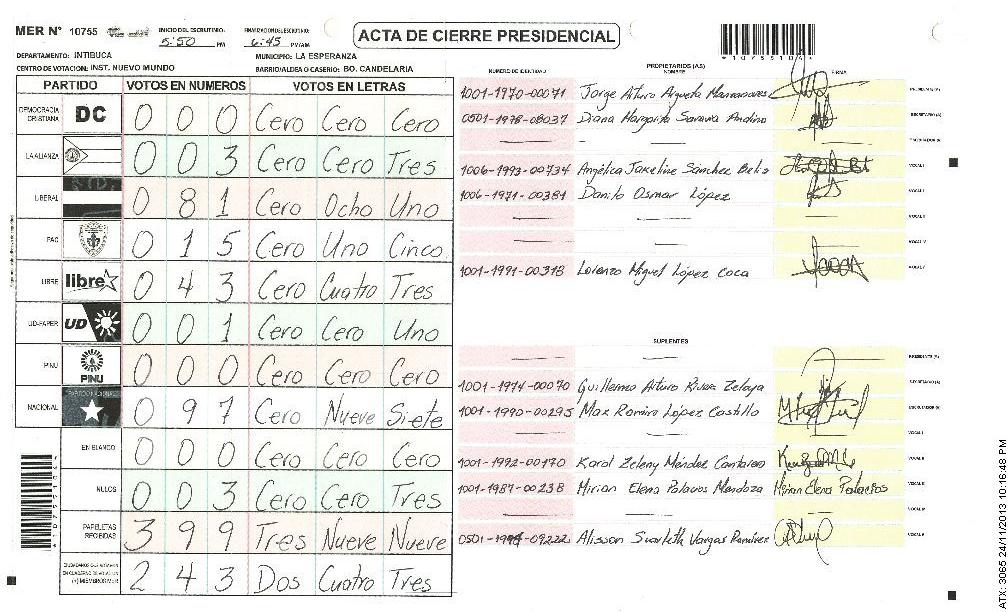 MER N° 10755 INICIO DEL ESCRUTINIO: 5:50 PM FINALIZACION DEL ESCRUTINIO: 6:45 PM/AM
ACTA DE CIERRE PRESIDENCIAL
DEPARTAMENTO: INTIBUCA MUNICIPIO: LA ESPERANZA
CENTRO DE VOTACION: INST. NUEVO MUNDO BARRIO/ALDEA O CASERIO: BO. CANDELARIA
PARTIDO VOTOS EN NUMEROS VOTOS EN LETRAS
DEMOCRACIA CRISTIANA DC 0 0 0 Cero Cero Cero
LA ALIANZA 0 0 3 Cero Cero Tres
LIBERAL 0 8 1 Cero Ocho Uno
PAC 0 1 5 Cero Uno Cinco
LIBRE libre 0 4 3 Cero Cuatro Tres
UD-FAPER UD 0 0 1 Cero Cero Uno
PINU PINU 0 0 0 Cero Cero Cero
NACIONAL 0 9 7 Cero Nueve Siete
EN BLANCO 0 0 0 Cero Cero Cero
NULOS 0 0 3 Cero Cero Tres
PAPELETAS RECIBIDAS 3 9 9 Tres Nueve Nueve
(+) MIEMBROS MER 2 4 3 Dos Cuatro Tres
*10755101*
PROPIETARIOS (AS)
NUMERO DE IDENTIDAD NOMBRE FIRMA
1001-1970-00071 Jorge Arturo Argueta Manzanares PRESIDENTE (A)
0501-1978-08037 Diana Margarita Saravia Andino SECRETARIO (A)
ESCRUTADOR (A)
1006-1993-00734 Angélica Jakeline Sánchez Bello VOCAL I
1006-1971-00381 Danilo Osmar López VOCAL II
VOCAL III
VOCAL IV
1001-1991-00318 Lorenzo Miguel López Coca VOCAL V
SUPLENTES
PRESIDENTE (A)
1001-1974-00070 Guillermo Arturo Rivas Zelaya SECRETARIO (A)
1001-1990-00295 Max Ramiro López Castillo ESCRUTADOR (A)
VOCAL I
1001-1992-00170 Karol Zeleny Méndez Cantarero VOCAL II
1001-1987-00238 Mirian Elena Palacios Mendoza Mirian Elena Palacios VOCAL III
VOCAL IV
Alisson Suarleth Vargas Ramírez VOCAL V
ATX: 3065 24/11/2013 10:16:48 PM